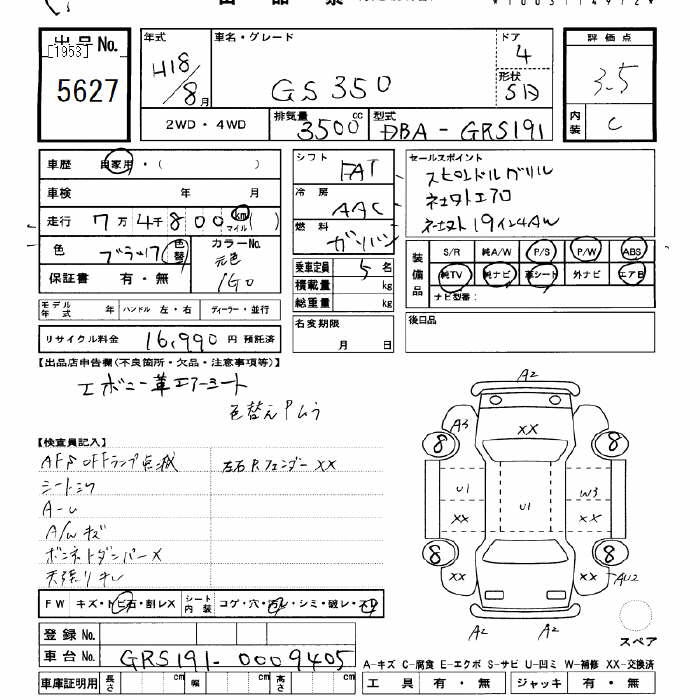 出品票
出品No.
[1953]
5627
年式
H18/8月
車名・グレード
GS350
ドア
4
形状
SD
2WD・4WD
排気量
3500cc
型式
DBA-GRS191
評価点
3.5
内装
C
車歴 自家用・( )
車検 年 月
走行 7万4千800km マイル ( )
色 ブラック 色替
カラーNo.
元色
1G0
保証書 有・無
モデル年式
ハンドル 左・右
ディーラー・並行
リサイクル料金 16,990円 預託済
シフト FAT
冷房 AAC
燃料 ガソリン
乗車定員 5名
積載量 kg
総重量 kg
名変期限
月 日
セールスポイント
スピンドルグリル
ネオストエアロ
ネオスト19インチAW
装備品
S/R 純A/W P/S P/W ABS
純TV 純ナビ 革シート 外ナビ エアB
ナビ型番:
後日品
【出品店申告欄(不良箇所・欠品・注意事項等)】
エボニー革エアーシート
色替え
【検査員記入】
AFS OFFランプ点滅
左右R.フェンダーXX
シートシワ
A-U
A/Wキズ
ボンネットダンパーX
天張りキレ
FW キズ・トビ石・割レX
シート内装 コゲ・穴・汚レ・シミ・破レ・スレ
登録No.
車台No. GRS191-0009405
車庫証明用 長さ cm 幅 cm 高さ cm
A2
A3
XX
8
8
U1
U1
W3
XX
XX
8
8
XX
XX
AU2
A2
A2
スペア
A-キズ C-腐食 E-エクボ S-サビ U-凹ミ W-補修 XX-交換済
工具 有・無
ジャッキ 有・無